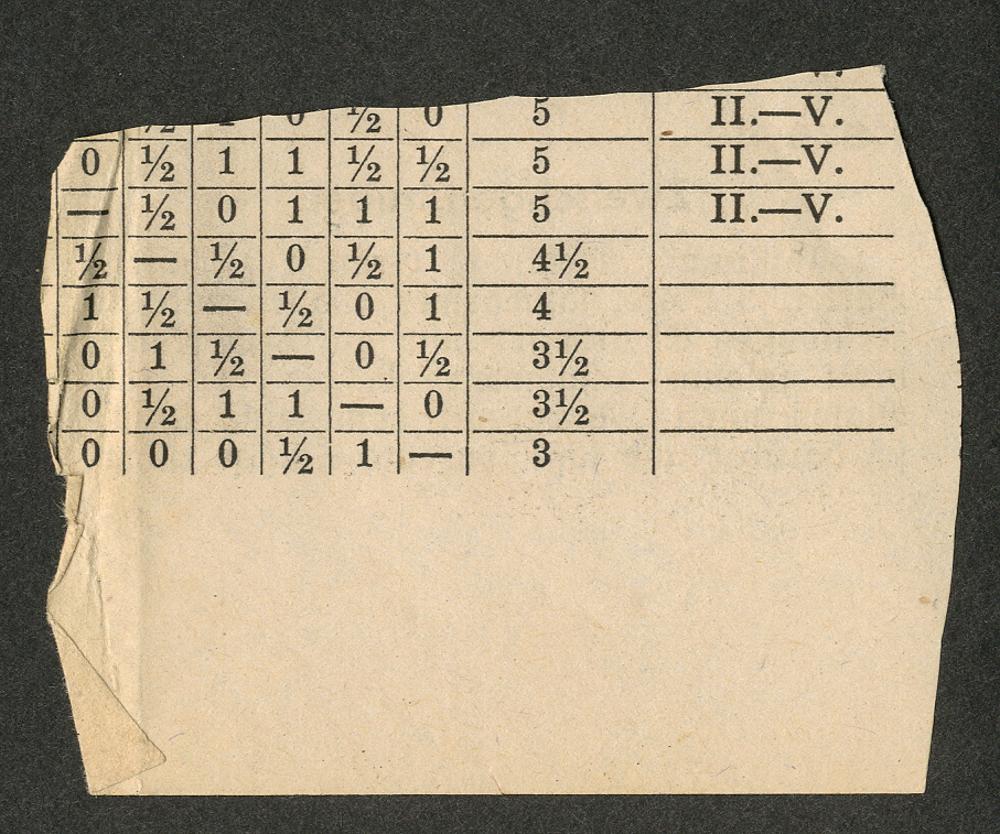 ½ 1 0 ½ 0 5 II.—V.
0 ½ 1 1 ½ ½ 5 II.—V.
— ½ 0 1 1 1 5 II.—V.
½ — ½ 0 ½ 1 4½
1 ½ — ½ 0 1 4
0 1 ½ — 0 ½ 3½
0 ½ 1 1 — 0 3½
0 0 0 ½ 1 — 3